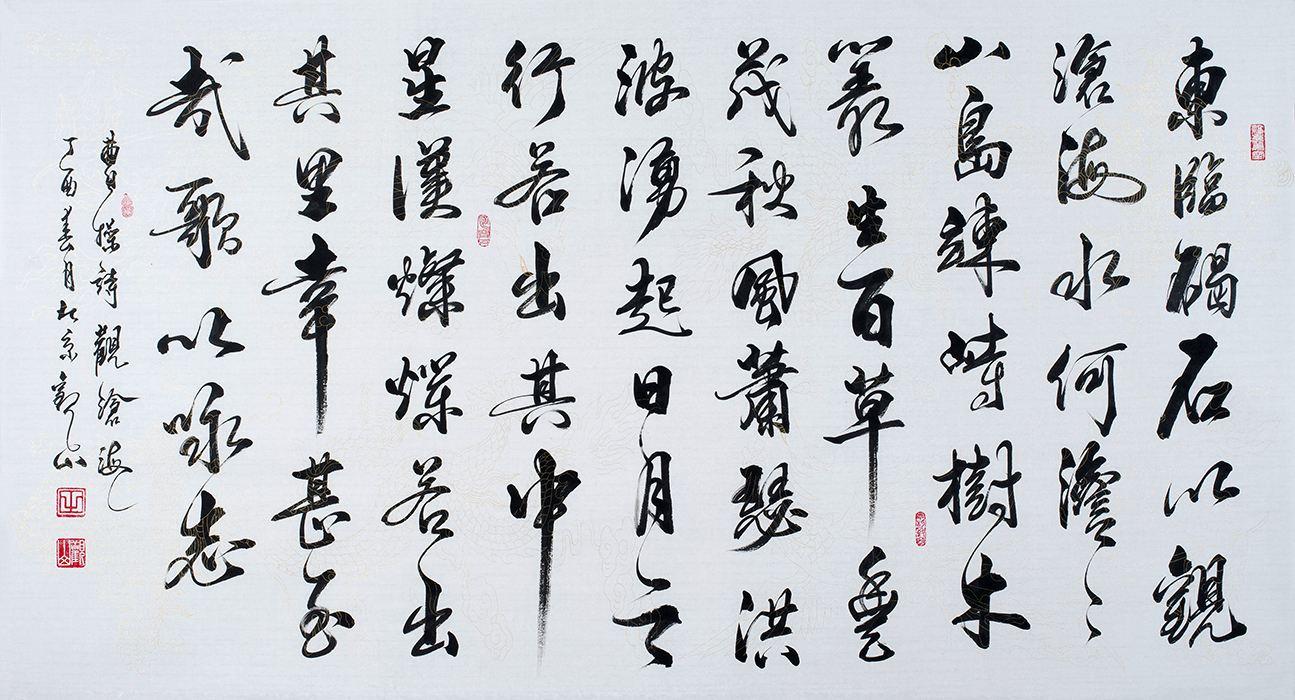 東臨碣石以觀
滄海水何澹〻
山島竦峙樹木
叢生百草豐
茂秋風蕭瑟洪
波湧起日月之
行若出其中
星漢燦爛若出
其里幸甚至
哉歌以咏志
曹操詩觀滄海
丁酉春月北京觀山
觀山